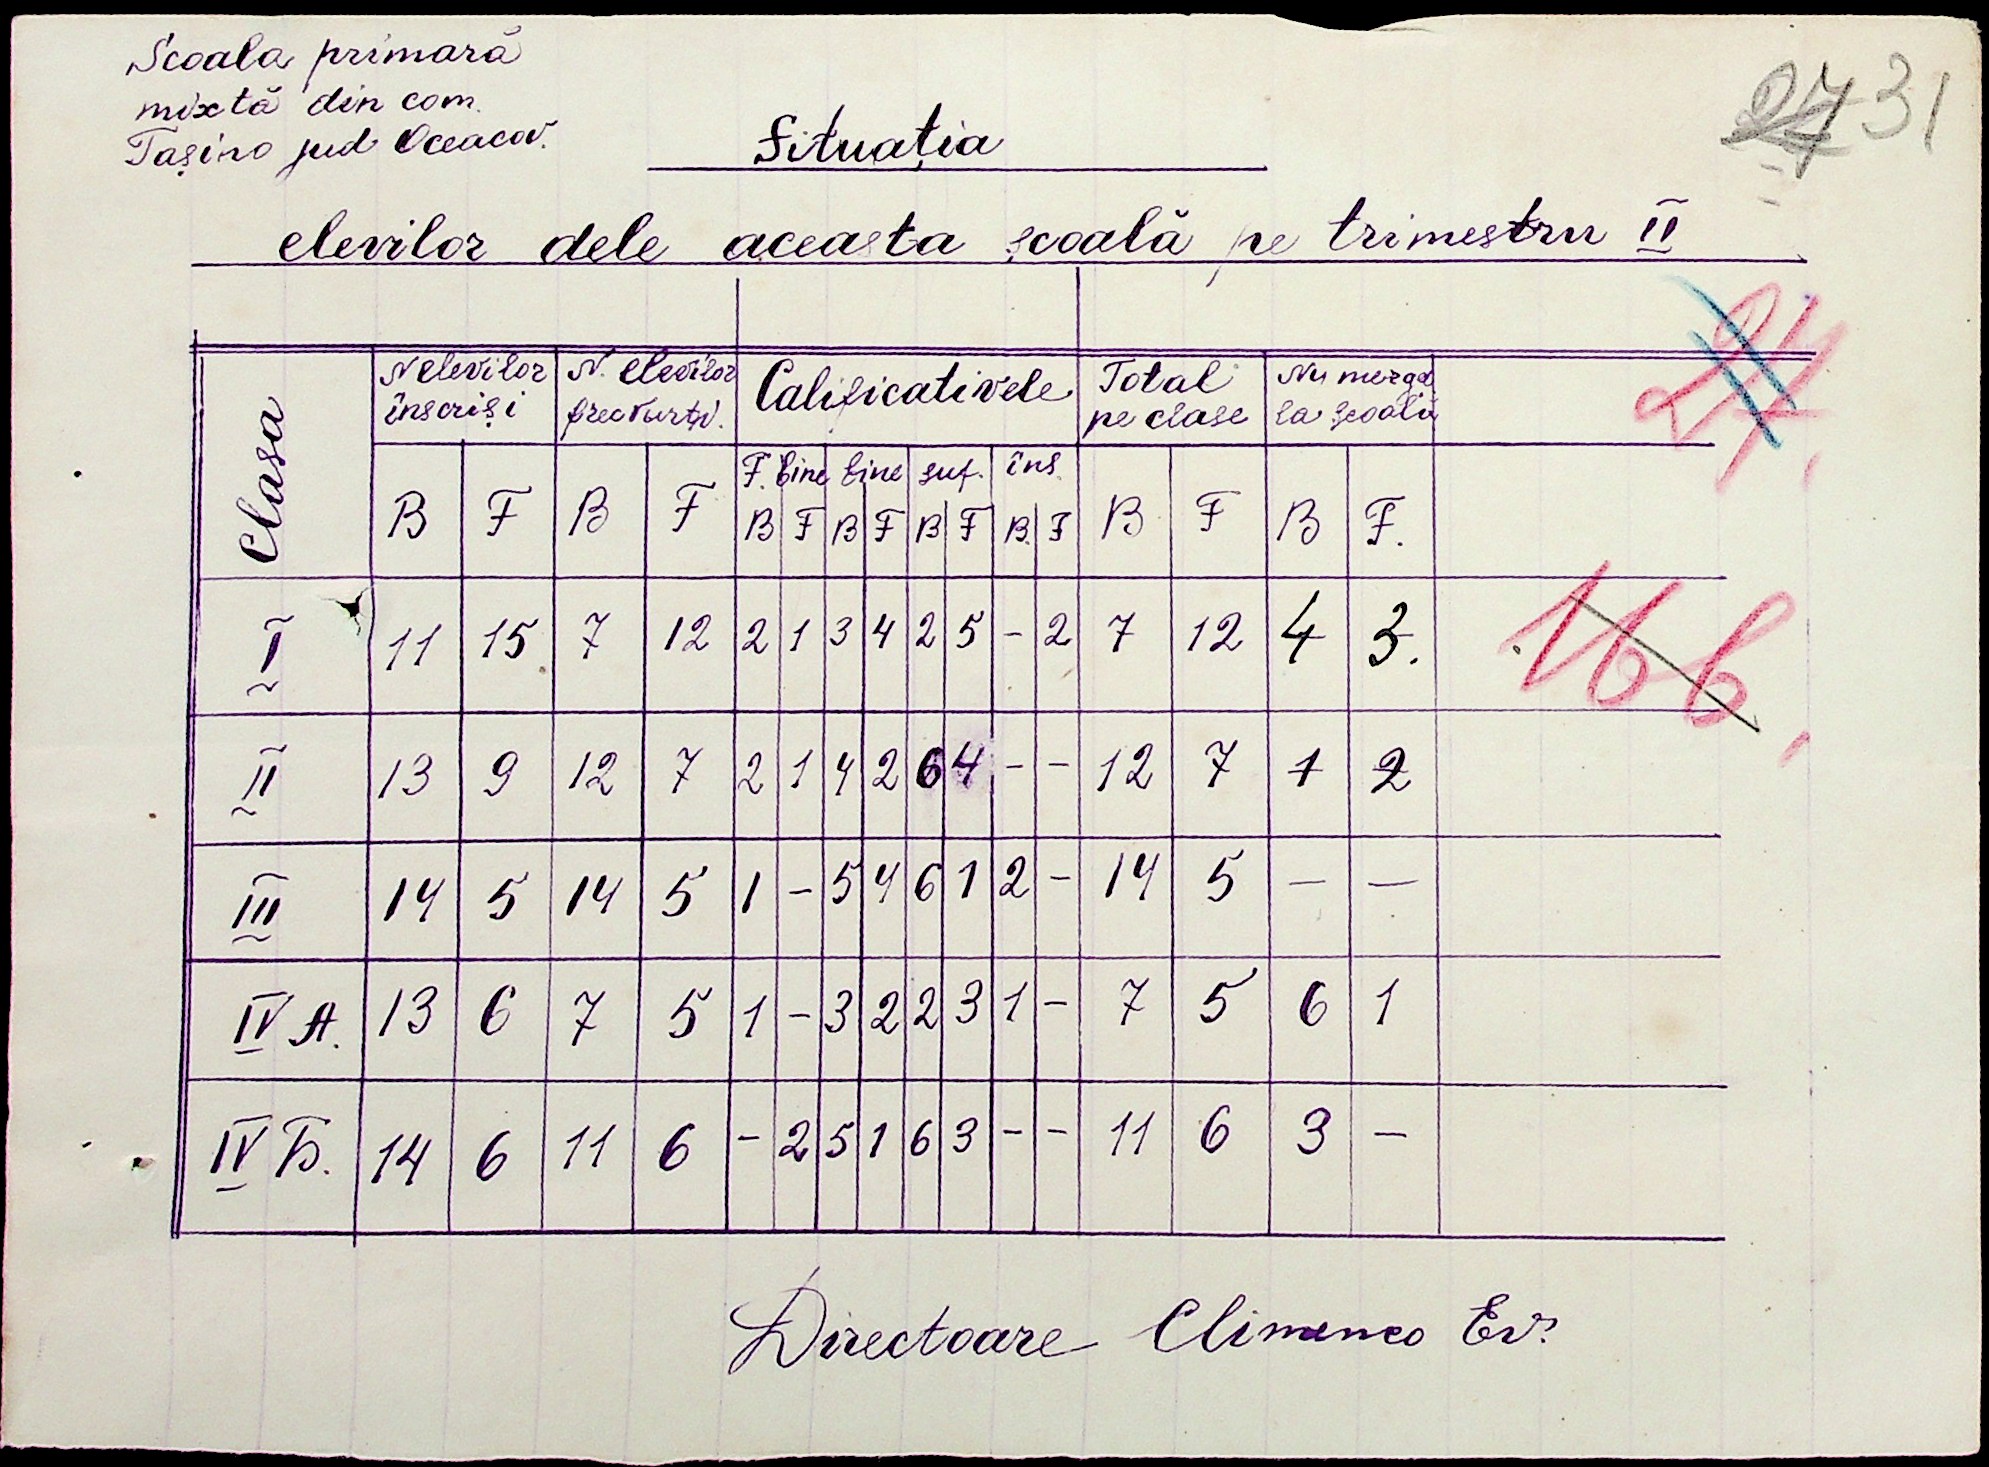 Scoala primară
mixtă din com.
Tașino jud Oceacov.
31
Situația
elevilor dele aceasta școală pe trimestru II
Clasa | N elevilor înscriși | N. elevilor frecvurți. | Calificativele | Total pe clase | Nu mergă la școală
F. bine | bine | suf. | îns.
B | F | B | F | B | F | B | F | B | F | B. | F | B | F | B | F.
I | 11 | 15 | 7 | 12 | 2 | 1 | 3 | 4 | 2 | 5 | - | 2 | 7 | 12 | 4 | 3.
II | 13 | 9 | 12 | 7 | 2 | 1 | 4 | 2 | 6 | 4 | - | - | 12 | 7 | 1 | 2
III | 14 | 5 | 14 | 5 | 1 | - | 5 | 4 | 6 | 1 | 2 | - | 14 | 5 | — | —
IV A. | 13 | 6 | 7 | 5 | 1 | - | 3 | 2 | 2 | 3 | 1 | - | 7 | 5 | 6 | 1
IV Б. | 14 | 6 | 11 | 6 | - | 2 | 5 | 1 | 6 | 3 | - | - | 11 | 6 | 3 | —
Directoare Climenco Ev.